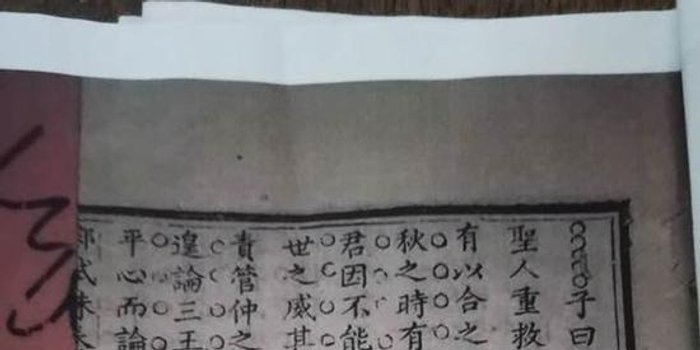 子曰
聖人重救
有以合之
秋之時有
君因不能
世之威其
責管仲之
遑論三王
平心而論